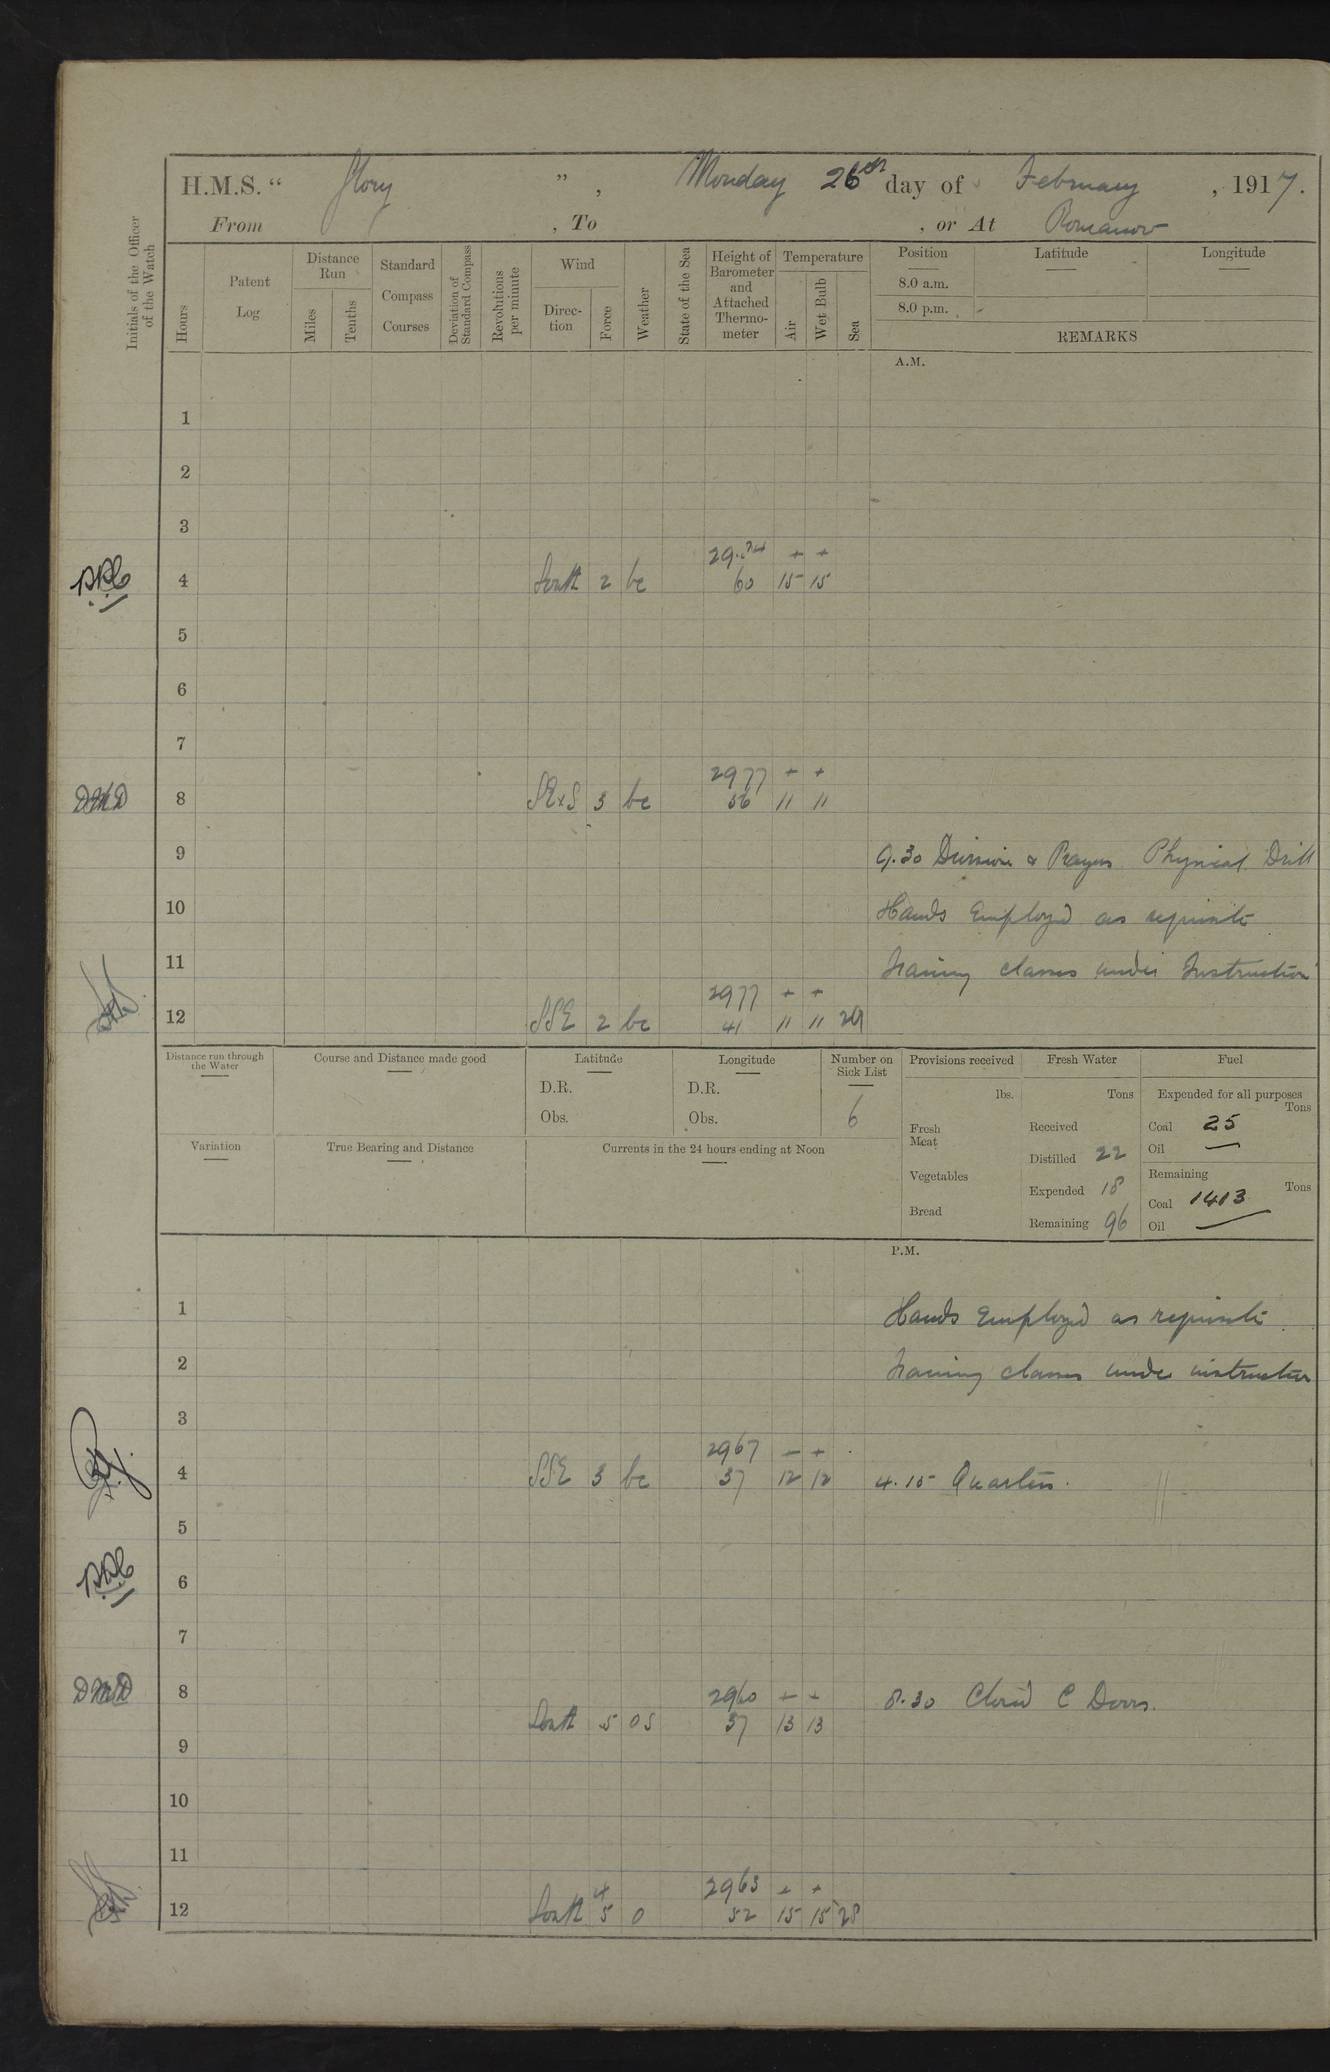 H.M.S. “ Glory ” , Monday 26th day of February , 1917.
From , To , or At Romanov
Initials of the Officer of the Watch
Hours
Patent Log
Distance Run
Miles
Tenths
Standard Compass Courses
Deviation of Standard Compass
Revolutions per minute
Wind
Direc-tion
Force
Weather
State of the Sea
Height of Barometer and Attached Thermo-meter
Temperature
Air
Wet Bulb
Sea
Position
8.0 a.m.
8.0 p.m.
Latitude
Longitude
REMARKS
A.M.
1
2
3
29. + +
4 South 2 bc 60 15 15
5
6
7
2977 + +
DMD 8 SE x S 3 bc 36 11 11
9 9.30 Divisions & Prayers Physical Drill
10 Hands Employd as requisite
11 Training classes under Instruction
2977 + +
12 SSE 2 bc 41 11 11 29
Distance run through the Water
Course and Distance made good
Latitude
D.R.
Obs.
Longitude
D.R.
Obs.
Number on Sick List
6
Provisions received
lbs.
Fresh Meat
Vegetables
Bread
Fresh Water
Tons
Received
Distilled 22
Expended 18
Remaining 96
Fuel
Expended for all purposes
Tons
Coal 25
Oil —
Remaining
Tons
Coal 1413
Oil —
Variation
True Bearing and Distance
Currents in the 24 hours ending at Noon
P.M.
1 Hands Employd as requisite
2 Training classes under instruction
3
2967 + +
4 SSE 3 bc 37 12 12 4.15 Quarters.
5
6
7
DMD 8 2960 + + 8.30 Closed C Doors.
South 5 OS 37 13 13
9
10
11
2963 + +
4
12 South 5 O 52 15 15 28